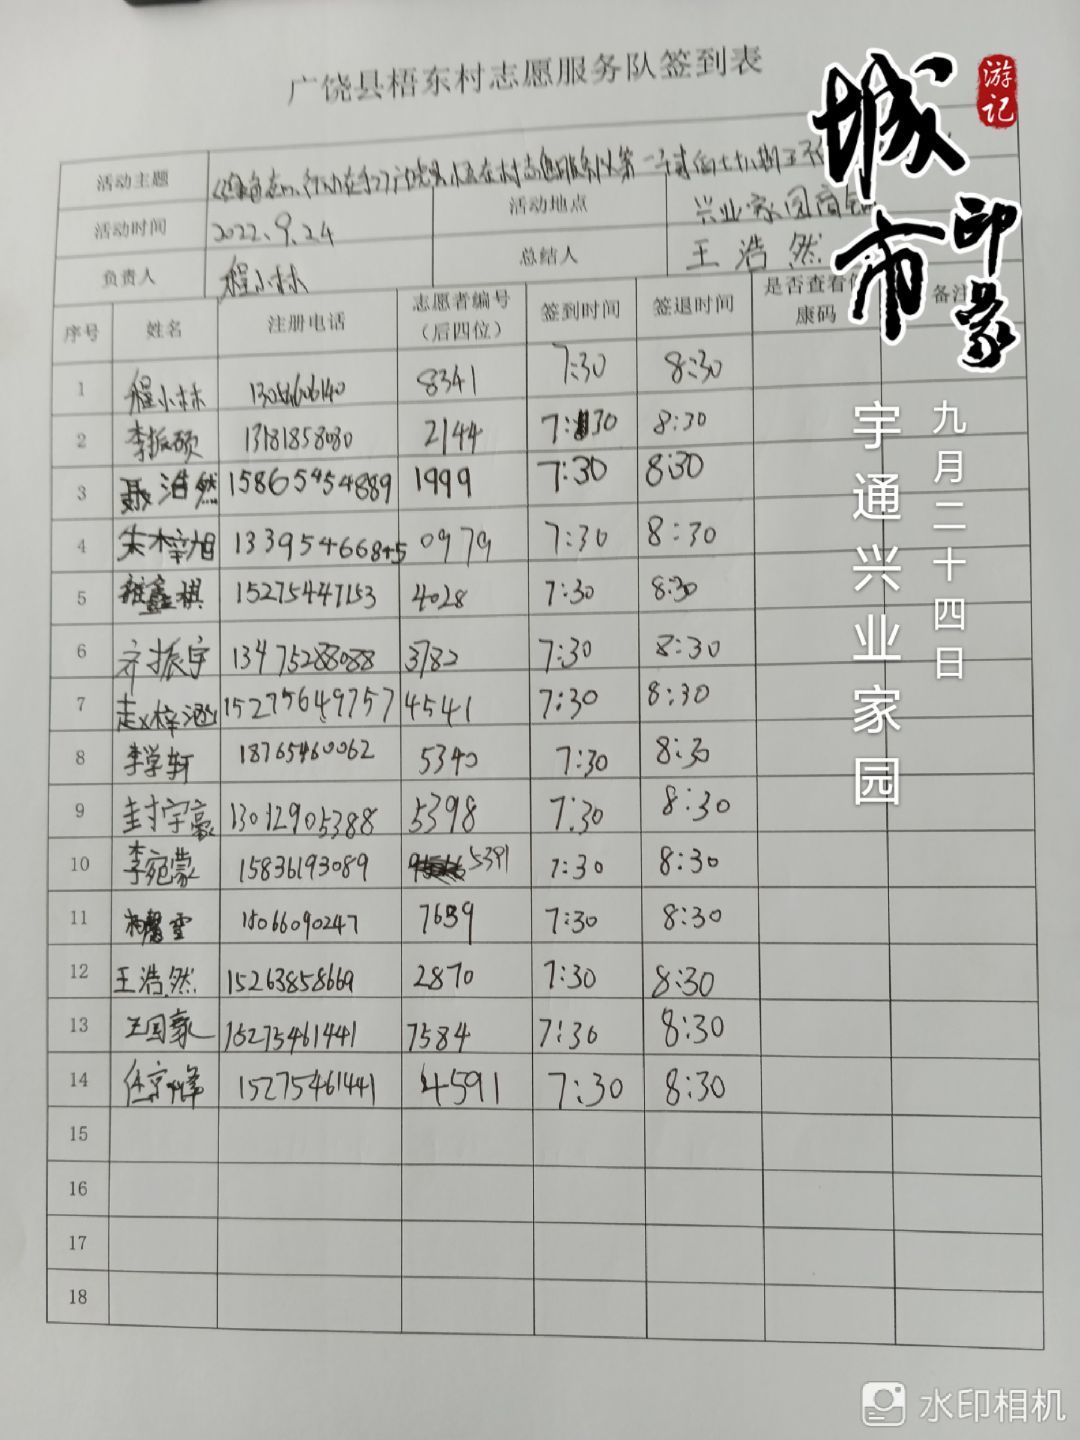 广饶县梧东村志愿服务队签到表
活动主题
活动时间 2022.9.24 活动地点 兴业家园商铺
负责人 程小林 总结人 王浩然
序号 姓名 注册电话 志愿者编号（后四位） 签到时间 签退时间 是否查看 康码 备注
1 程小林 8341 7:30 8:30
2 李振硕 13181858030 2144 7:30 8:30
3 聂浩然 15865454889 1999 7:30 8:30
4 朱梓旭 0979 7:30 8:30
5 鑫祺 15275447153 4028 7:30 8:30
6 齐振宇 13475288088 3782 7:30 8:30
7 赵梓涵 15275649757 4541 7:30 8:30
8 李学轩 18765460062 5340 7:30 8:30
9 封宇豪 13012905388 5398 7:30 8:30
10 李宛蒙 15836193089 5391 7:30 8:30
11 15066090247 7659 7:30 8:30
12 王浩然 15263858669 2870 7:30 8:30
13 王国豪 15275461441 7584 7:30 8:30
14 任京峰 15275461441 4591 7:30 8:30
15
16
17
18
城市印象
游记
九月二十四日
宇通兴业家园
水印相机